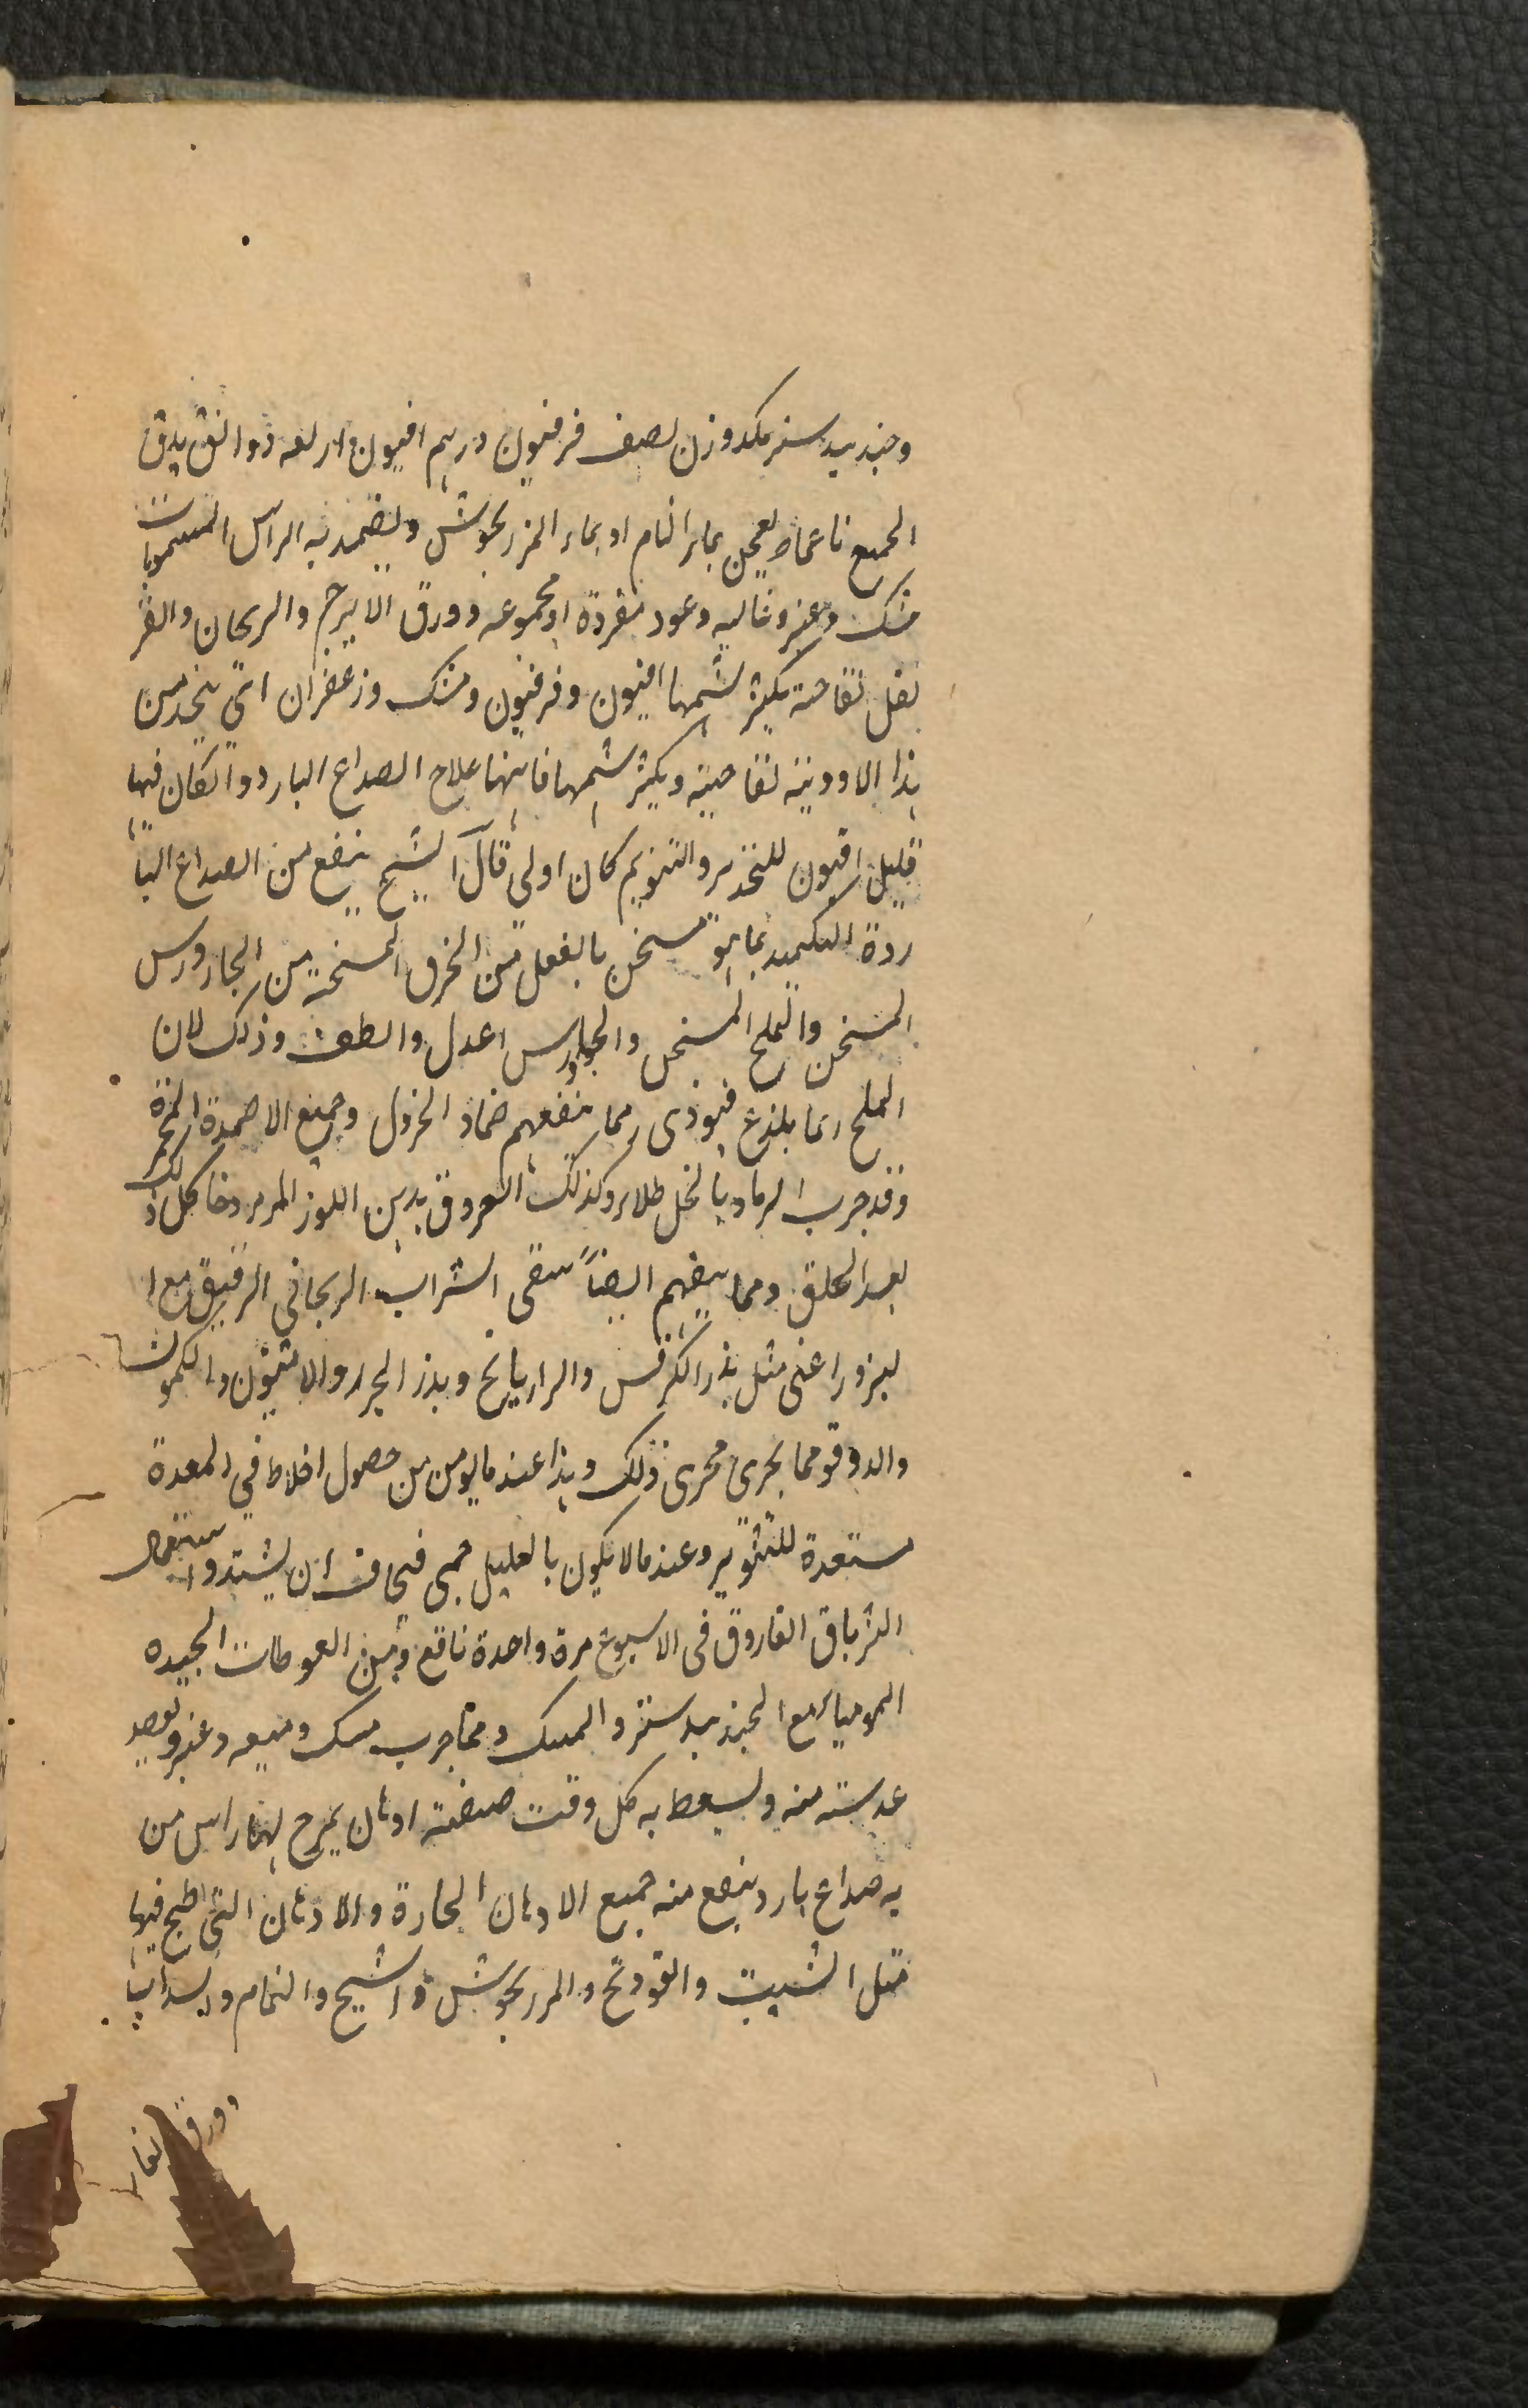 وجندبيدستر مكدوزن نصف فرفيون درهم افيون واربعه دوانق يدق
الجميع ناعما ويعجن بماء النمام او بماء المرزنجوش ويضمد به الراس المشمومات
مشك وعنبر وغاليه وعود مفردة او مجموعه وورق الاترج والريحان والقر
نفل تفاحة يكثر شمها افيون وفرفيون ومشك وزعفران اى يتخذ من
هذا الادوية تفاحية ويكثر شمها فانها علاج الصداع البارد وانكان فيها
قليل افيون للتخدير والتنويم كان اولى قال الشيخ ينفع من الصداع البا
ردة التكميد بما هو مسخن بالفعل من الخرق المسخنة من الجاورس
المسخن والملح المسخن والجاورس اعدل والطف وذلك لان
الملح ربما يلذع فيوذى ومما ينفعهم ضماد الخردل وجميع الاضمدة المحمرة
وقد جرب الرماد بالخل طلاء وكذلك العروق بدهن اللوز المر وخا كل ذلك
بعد الحلق ومما ينفهم ايضاً سقى الشراب الريحانى الرقيق مع ا
لبزور اعنى مثل بذر الكرفس والرازيانج وبذر الجزر والانيسون والكمون
والدوقو مما يجرى مجرى ذلك وهذا عند ما يومن من حصول اخلاط في المعدة
مستعدة للتثوير وعند ما لا يكون بالعليل حمى فيخاف ان يشتد واستعمال
الترياق الفاروق فى الاسبوع مرة واحدة نافع ومن العوطات الجيده
الموميا مع الجندبيدستر والمسك ومما جرب مسك وميعه وعنبر
عدسته منه ويسعط به كل وقت صفته ادهان يمرخ بها راس من
به صداع بارد ينفع منه جميع الادهان الحارة والادهان التى طبخ فيها
مثل الشبت والفودنج والمرزنجوش والشيح والنمام والسداب
وورق الغار